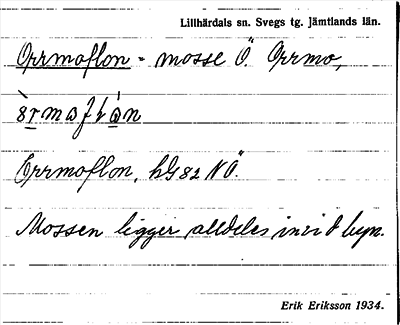 Lillhärdals sn. Svegs tg. Jämtlands län.
Orrmoflon - mosse Ö. Orrmo,
Orrmoflon, hG 82 NÖ.
Mossen ligger alldeles invid byn.
Erik Eriksson 1934.